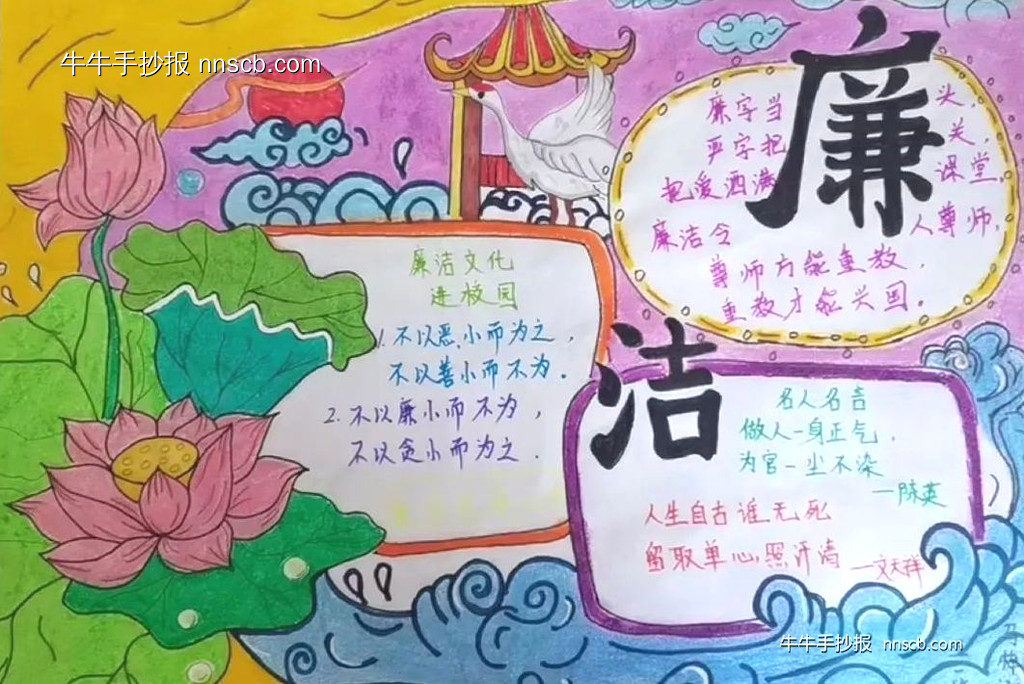 牛牛手抄报 nnscb.com
廉洁
廉字当头，
严字把关，
把爱洒满课堂，
廉洁令人尊师，
尊师方能重教，
重教才能兴国。
廉洁文化
进校园
1.不以恶小而为之，
不以善小而不为。
2.不以廉小而不为，
不以贪小而为之.
名人名言
做人一身正气，
为官一尘不染
—陈英
人生自古谁无死
留取单心照汗清
—文天祥
牛牛手抄报 nnscb.com